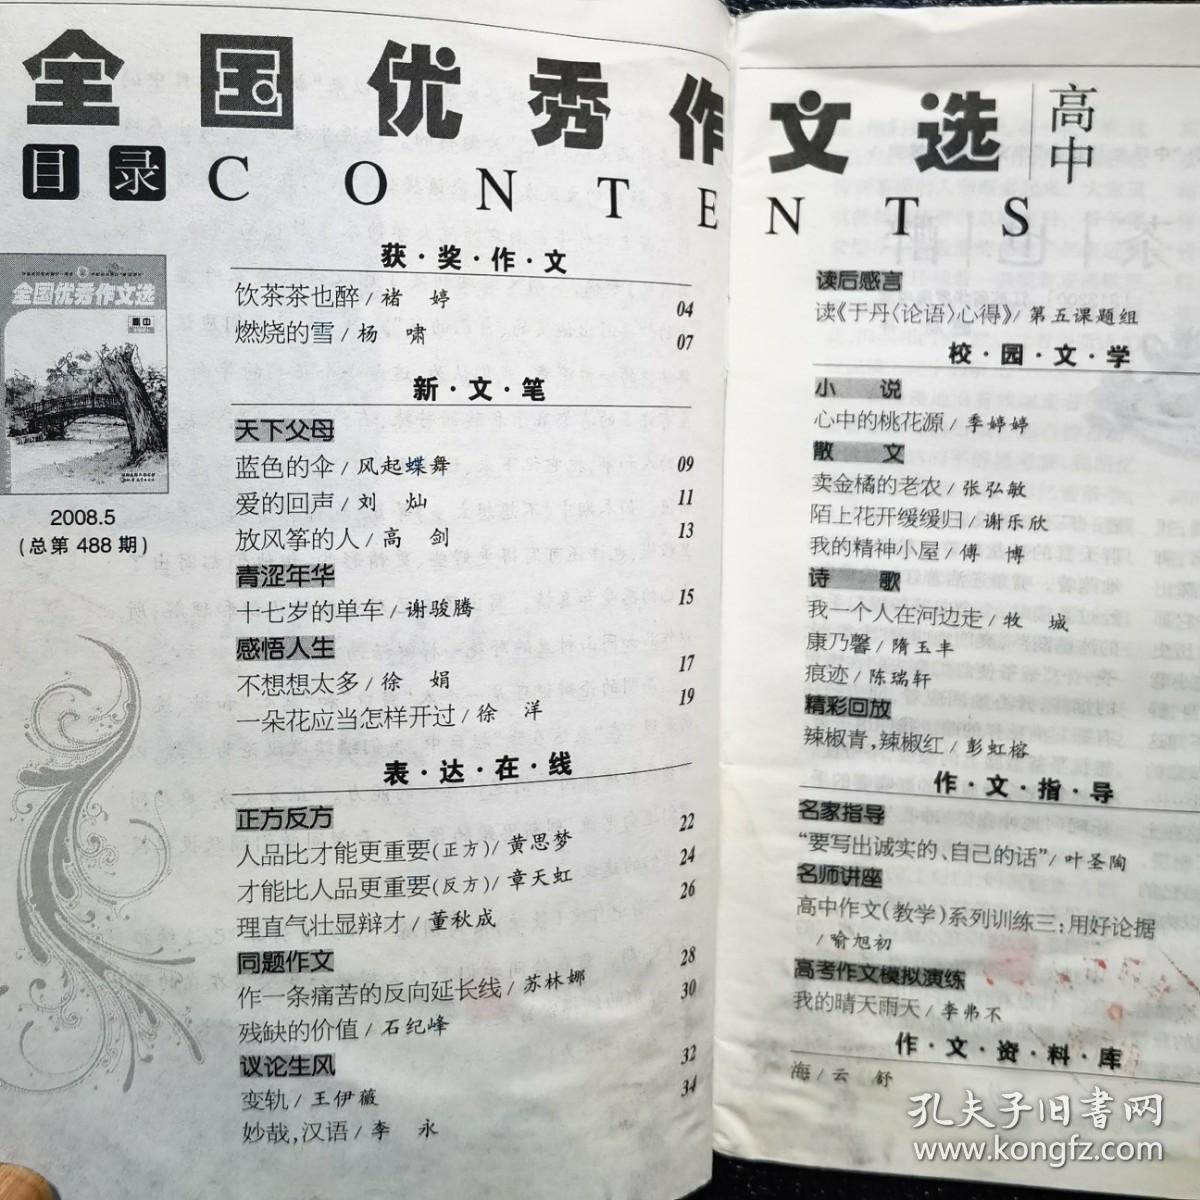 全国优秀作文选 高中
目录 CONTENTS
全国优秀作文选
高中
2008.5
(总第 488 期)
获·奖·作·文
饮茶茶也醉/褚 婷 04
燃烧的雪/杨 啸 07
新·文·笔
天下父母
蓝色的伞/风起蝶舞 09
爱的回声/刘 灿 11
放风筝的人/高 剑 13
青涩年华
十七岁的单车/谢骏腾 15
感悟人生
不想想太多/徐 娟 17
一朵花应当怎样开过/徐 洋 19
表·达·在·线
正方反方
人品比才能更重要(正方)/黄思梦 22
才能比人品更重要(反方)/章天虹 24
理直气壮显辩才/董秋成 26
同题作文
作一条痛苦的反向延长线/苏林娜 28
残缺的价值/石纪峰 30
议论生风
变轨/王伊薇 32
妙哉,汉语/李 永 34
读后感言
读《于丹〈论语〉心得》/第五课题组
校·园·文·学
小 说
心中的桃花源/季婷婷
散 文
卖金橘的老农/张弘敏
陌上花开缓缓归/谢乐欣
我的精神小屋/傅 博
诗 歌
我一个人在河边走/牧 城
康乃馨/隋玉丰
痕迹/陈瑞轩
精彩回放
辣椒青,辣椒红/彭虹榕
作·文·指·导
名家指导
“要写出诚实的、自己的话”/叶圣陶
名师讲座
高中作文(教学)系列训练三:用好论据
/喻旭初
高考作文模拟演练
我的晴天雨天/李弗不
作·文·资·料·库
海/云 舒
孔夫子旧书网
www.kongfz.com